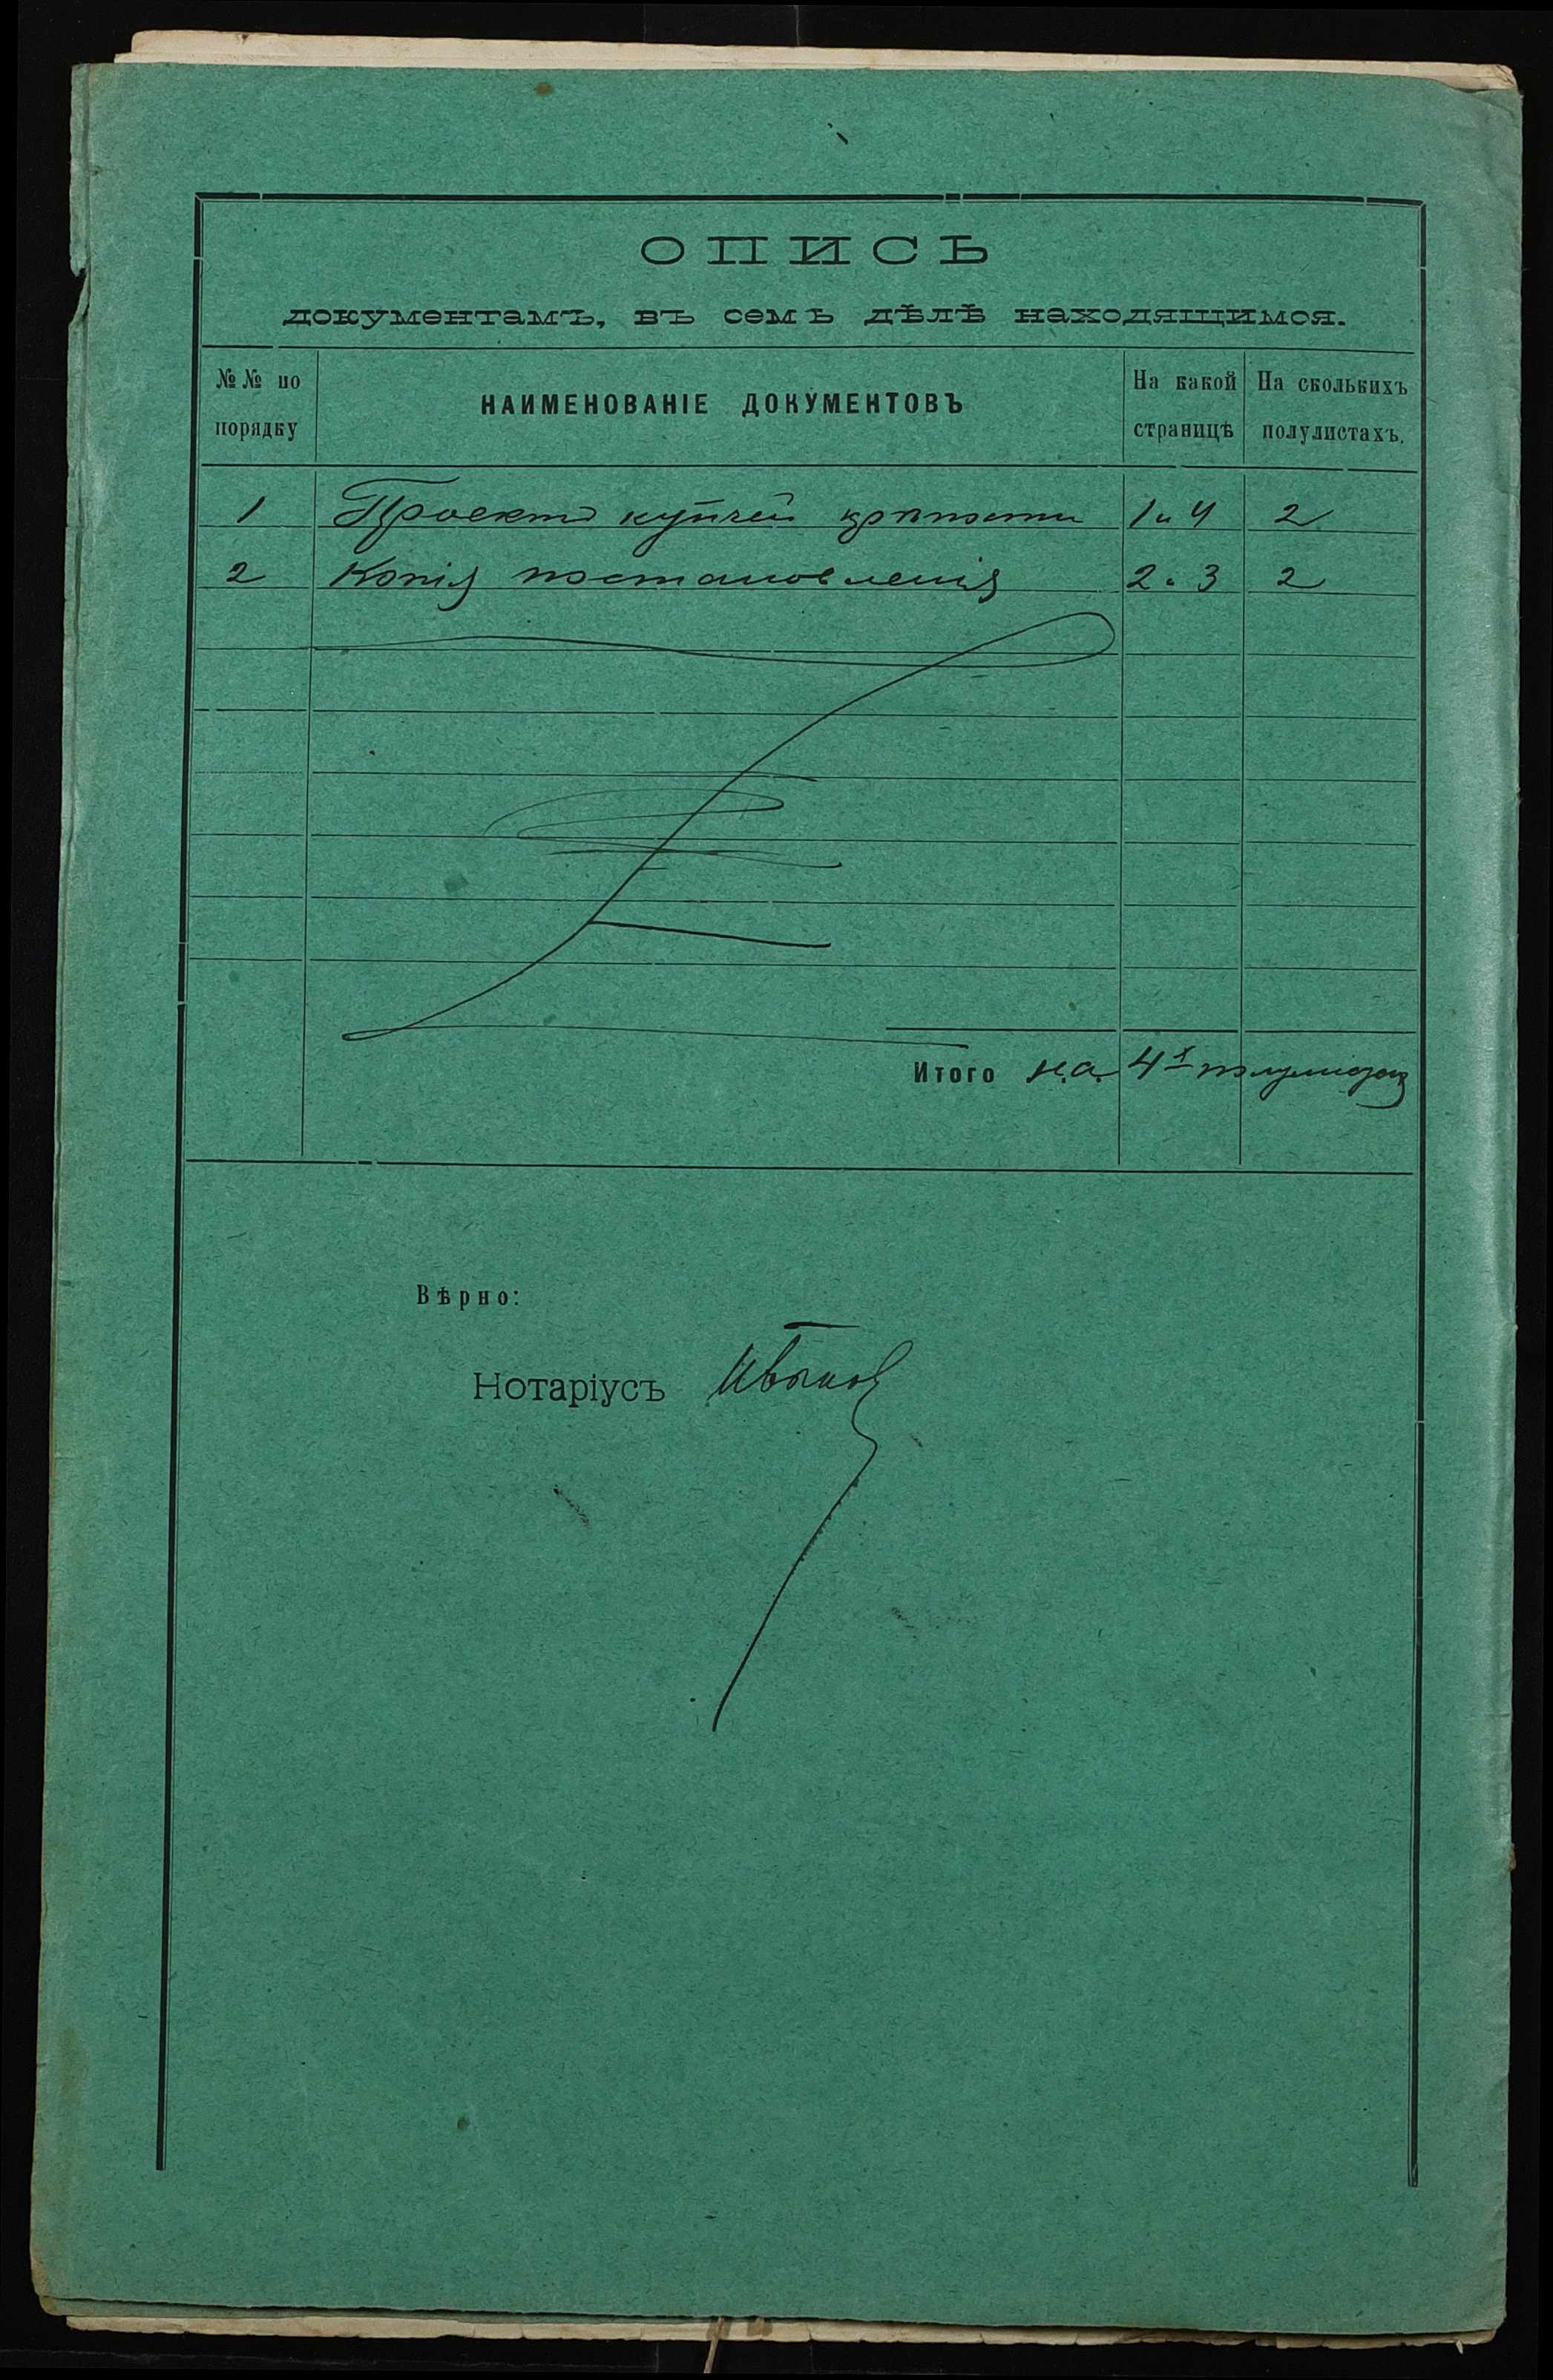 ОПИСЬ
документамъ, въ семъ дѣлѣ находящимся.
№№ по порядку
НАИМЕНОВАНІЕ ДОКУМЕНТОВЪ
На какой страницѣ
На сколькихъ полулистахъ.
1 Проектъ купчей крѣпости 1 и 4 2
2 Копія постановленія 2 и 3 2
Итого на 4х полулистахъ
Вѣрно:
Нотаріусъ